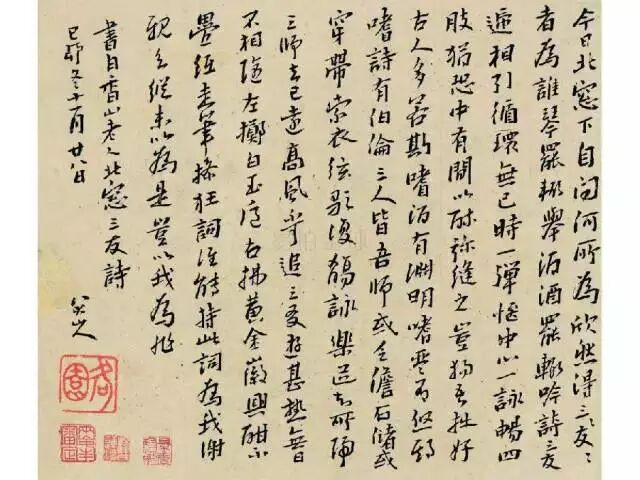 今日北窓下自問何所為欣然得三友〻
者為誰琴罷輒舉酒酒罷輒吟詩三友
遞相引循環無已時一彈愜中心一詠暢四
肢猶恐中有間以酔弥縫之豈獨吾拙好
古人多若斯嗜酒有淵明嗜琴有啓期
嗜詩有伯倫三人皆吾師或乏儋石儲或
穿帶索衣絃歌復觴詠樂道知所歸
三師去已遠高風不可追三友遊甚熟無日
不相隨左擲白玉卮右拂黃金徽興酣不
疊紙走筆操狂詞誰能持此詞為我謝
親知縱未以為是豈以我為非
書白香山老人北窓三友詩
己卯冬十一月廿八日
八大山人